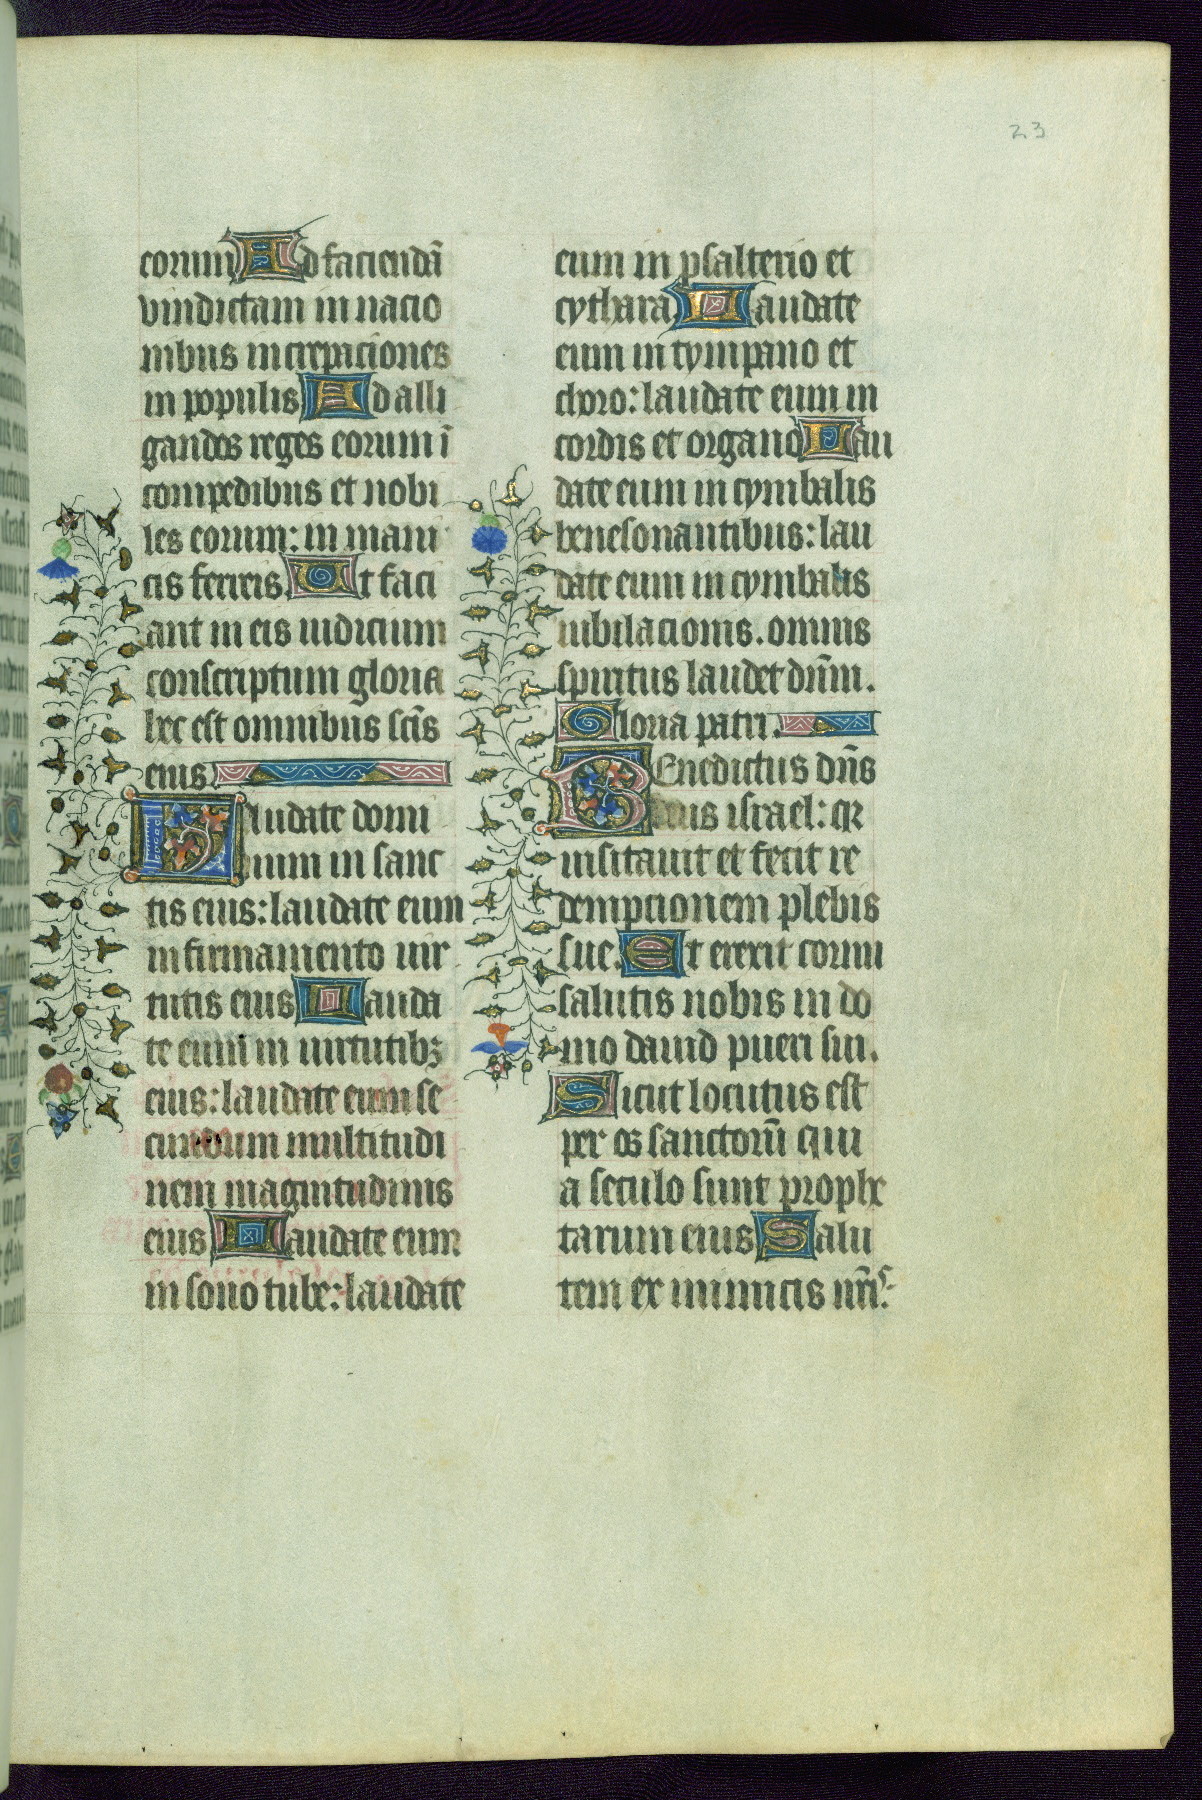 23
eorum Ad faciendā
vindictam in nacio
nibus increpaciones
in populis Ad alli
gandos reges eorum ī
compedibus et nobi
les eorum: in mani
cis ferreis. Ut faci
ant in eis iudicium
conscriptum gloria
hec est omnibus scīs
eius
Laudate domi
num in sanc
tis eius: laudate eum
in firmamento uir
tutis eius Lauda
te eum in uirtutibꝫ
eius: laudate eum se
cundum multitudi
nem magnitudinis
eius Laudate eum
in sono tube: laudate
eum in psalterio et
cythara Laudate
eum in tympano et
choro: laudate eum in
cordis et organo Lau
date eum in cymbalis
benesonantibus: lau
date eum in cymbalis
iubilacionis. omnis
spiritus laudet dn̄m.
Gloria patri.
Benedictus dn̄s
deus israel: qr
uisitauit et fecit re
dempcionem plebis
sue. Et erexit cornu
salutis nobis in do
mo dauid pueri sui.
Sicut locutus est
per os sanctorū qui
a seculo sunt prophe
tarum eius Salu
tem ex inimicis nr̄is: